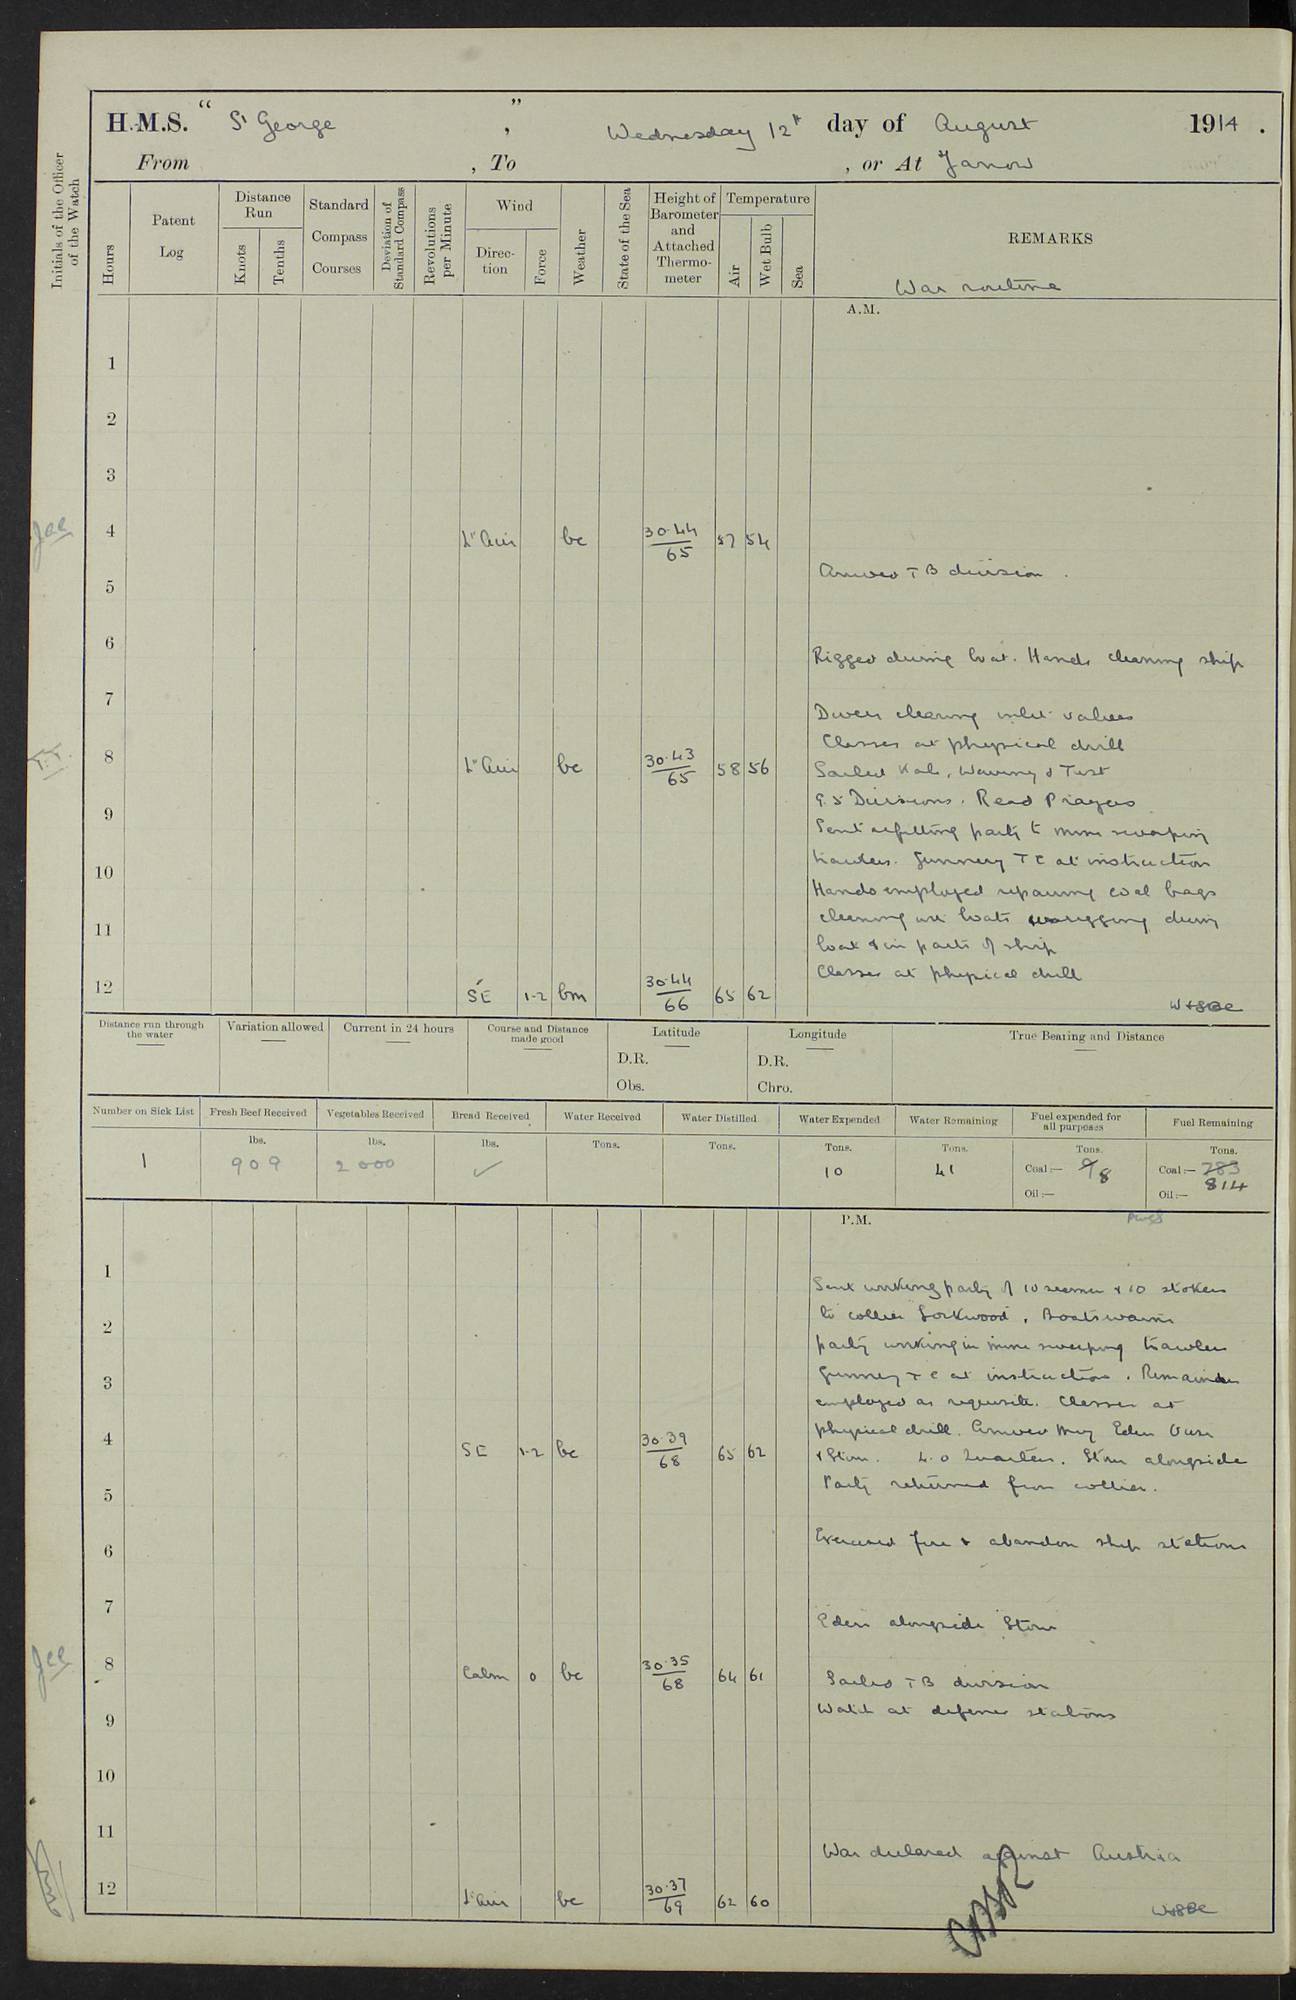 H.M.S. " St George ", Wednesday 12th day of August 1914.
From , To , or At Yarrow
Initials of the Officer of the Watch
Hours
Patent Log
Distance Run
Knots
Tenths
Standard Compass Courses
Deviation of Standard Compass
Revolutions per Minute
Wind
Direction
Force
Weather
State of the Sea
Height of Barometer and Attached Thermometer
Temperature
Air
Wet Bulb
Sea
REMARKS
War routine
A.M.
1
2
3
4 Lt Air bc 30.44/65 57 54
Arrived TB division.
5
6
Rigged diving boat. Hands cleaning ship
7
Divers clearing inlet valves
Classes at physical drill
8 Lt Air bc 30.43/65 58 56
Sailed Kale, Waveney & Test
9.5 Divisions. Read Prayers
9
Sent refitting party to mine sweeping
trawlers. Gunnery TC at instruction
10
Hands employed repairing coal bags
cleaning boats rigging diving
11
boat & in parts of ship
Classes at physical drill
12 SE 1-2 bm 30.44/66 65 62
Distance run through the water
Variation allowed
Current in 24 hours
Course and Distance made good
Latitude
D.R.
Obs.
Longitude
D.R.
Chro.
True Bearing and Distance
Number on Sick List
Fresh Beef Received
Vegetables Received
Bread Received
Water Received
Water Distilled
Water Expended
Water Remaining
Fuel expended for all purposes
Fuel Remaining
lbs. lbs. lbs. Tons. Tons. Tons. Tons. Tons. Tons.
1 909 2000 ✓ 10 41 Coal:— 8 Coal:— 783
814
Oil:— Oil:—
P.M.
1
Sent working party of 10 seamen & 10 stokers
2
to collier Lockwood. Boatswains
party working in mine sweeping trawlers
3
Gunnery TC at instruction. Remainder
employed as requisite. Classes at
4 SE 1-2 bc 30.39/68 65 62
physical drill. Arrived Eden Ouse
& Stour. 4.0 Quarters. Stour alongside
5
Party returned from collier.
6
Exercised fire & abandon ship stations
7
Eden alongside Stour
8 Calm 0 bc 30.35/68 64 61
Sailed TB division
9
Watch at defence stations
10
11
War declared against Austria
12 Lt Air bc 30.37/69 62 60